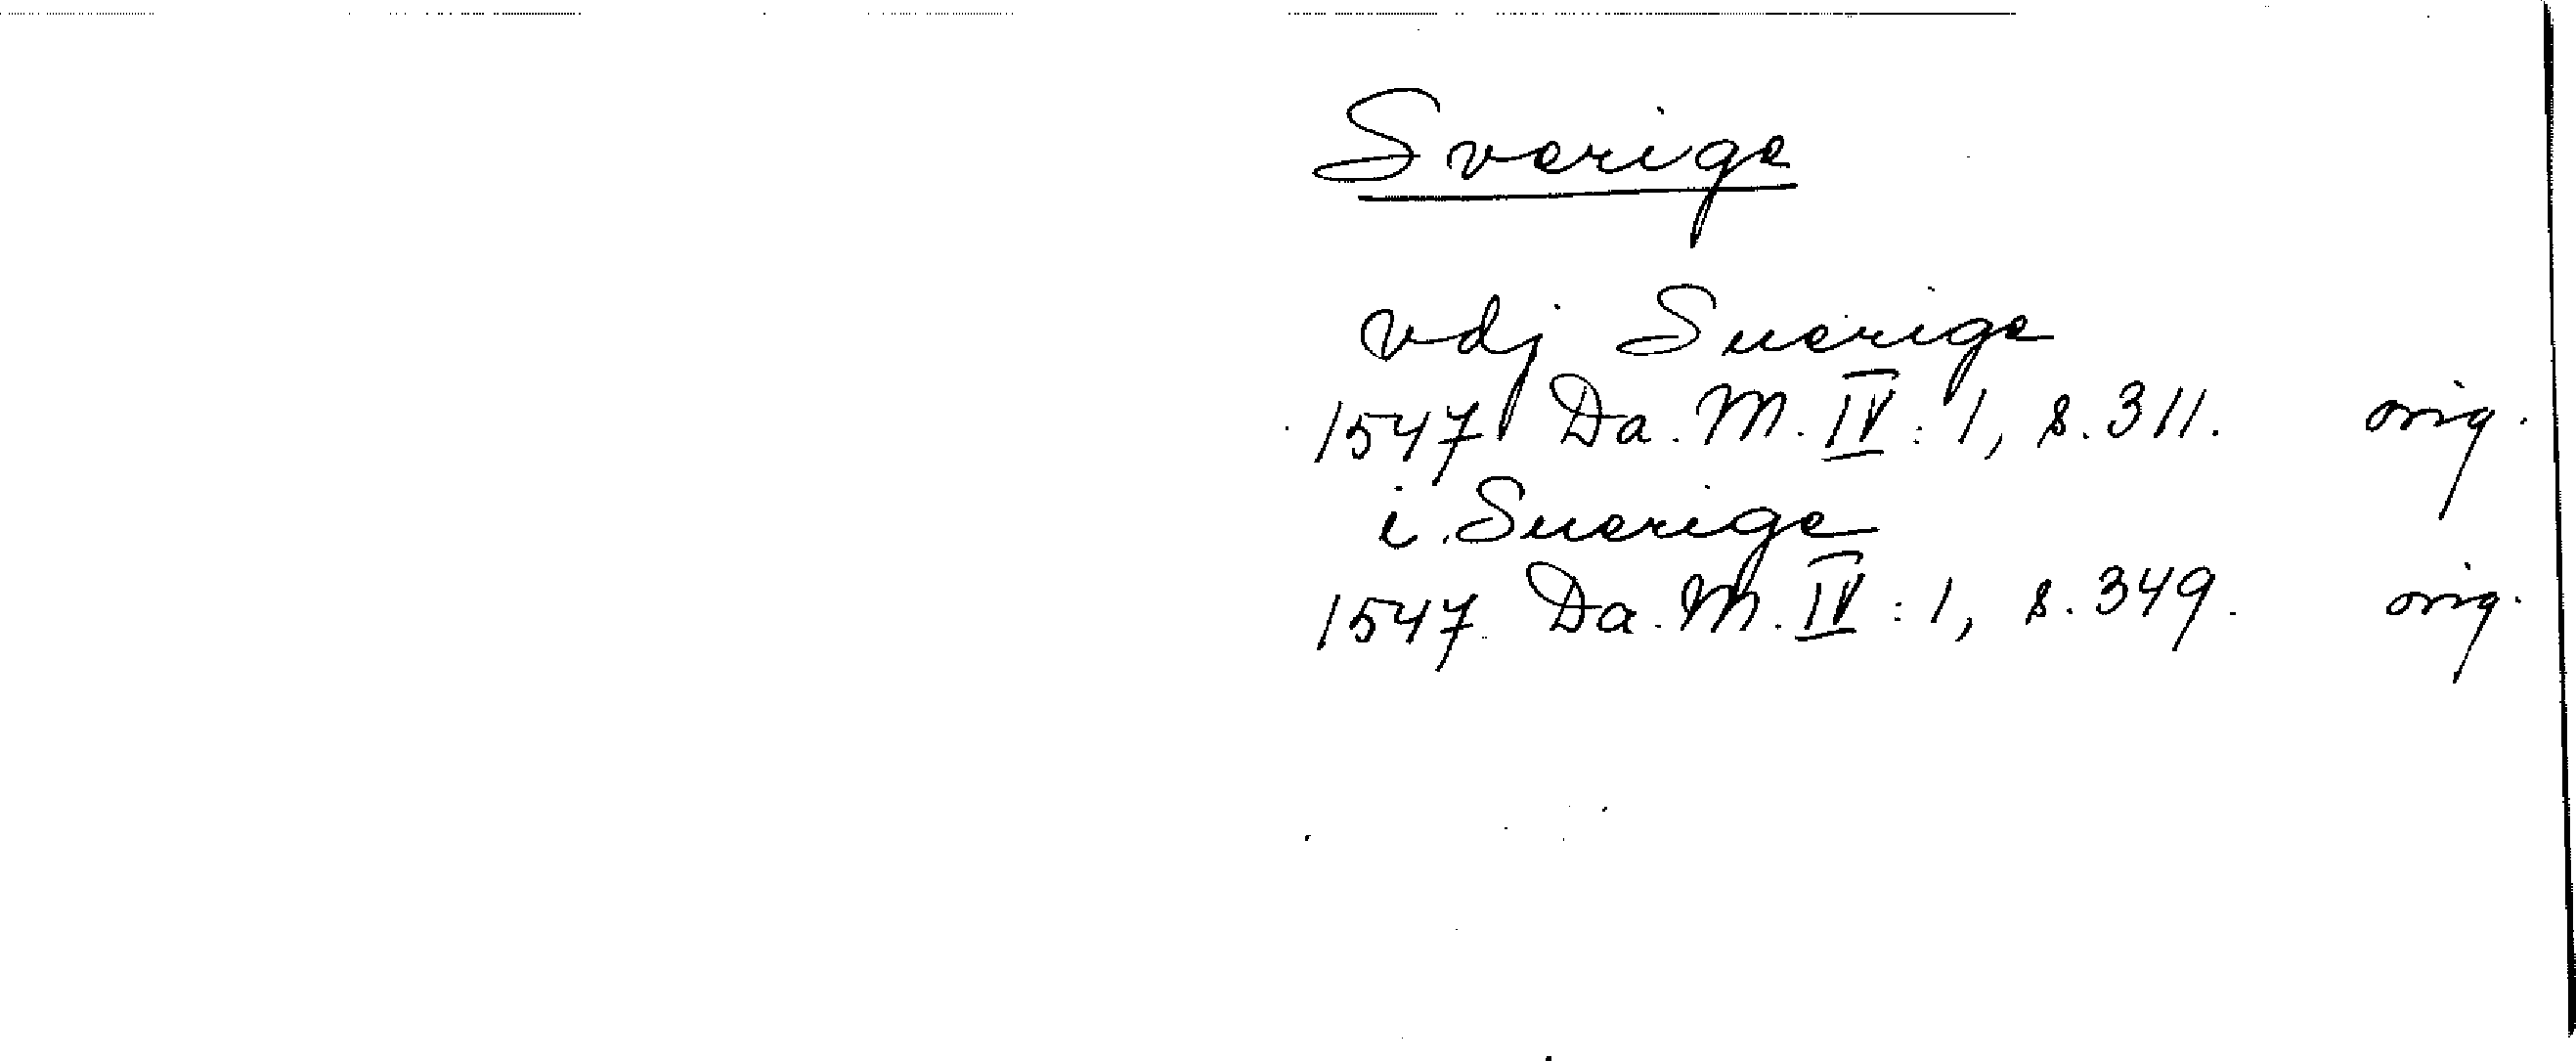 Sverige
vdj Suerige
1547 Da. M. IV: 1, s. 311. orig.
i Suerige
1547 Da. M. IV: 1, s. 349. orig.